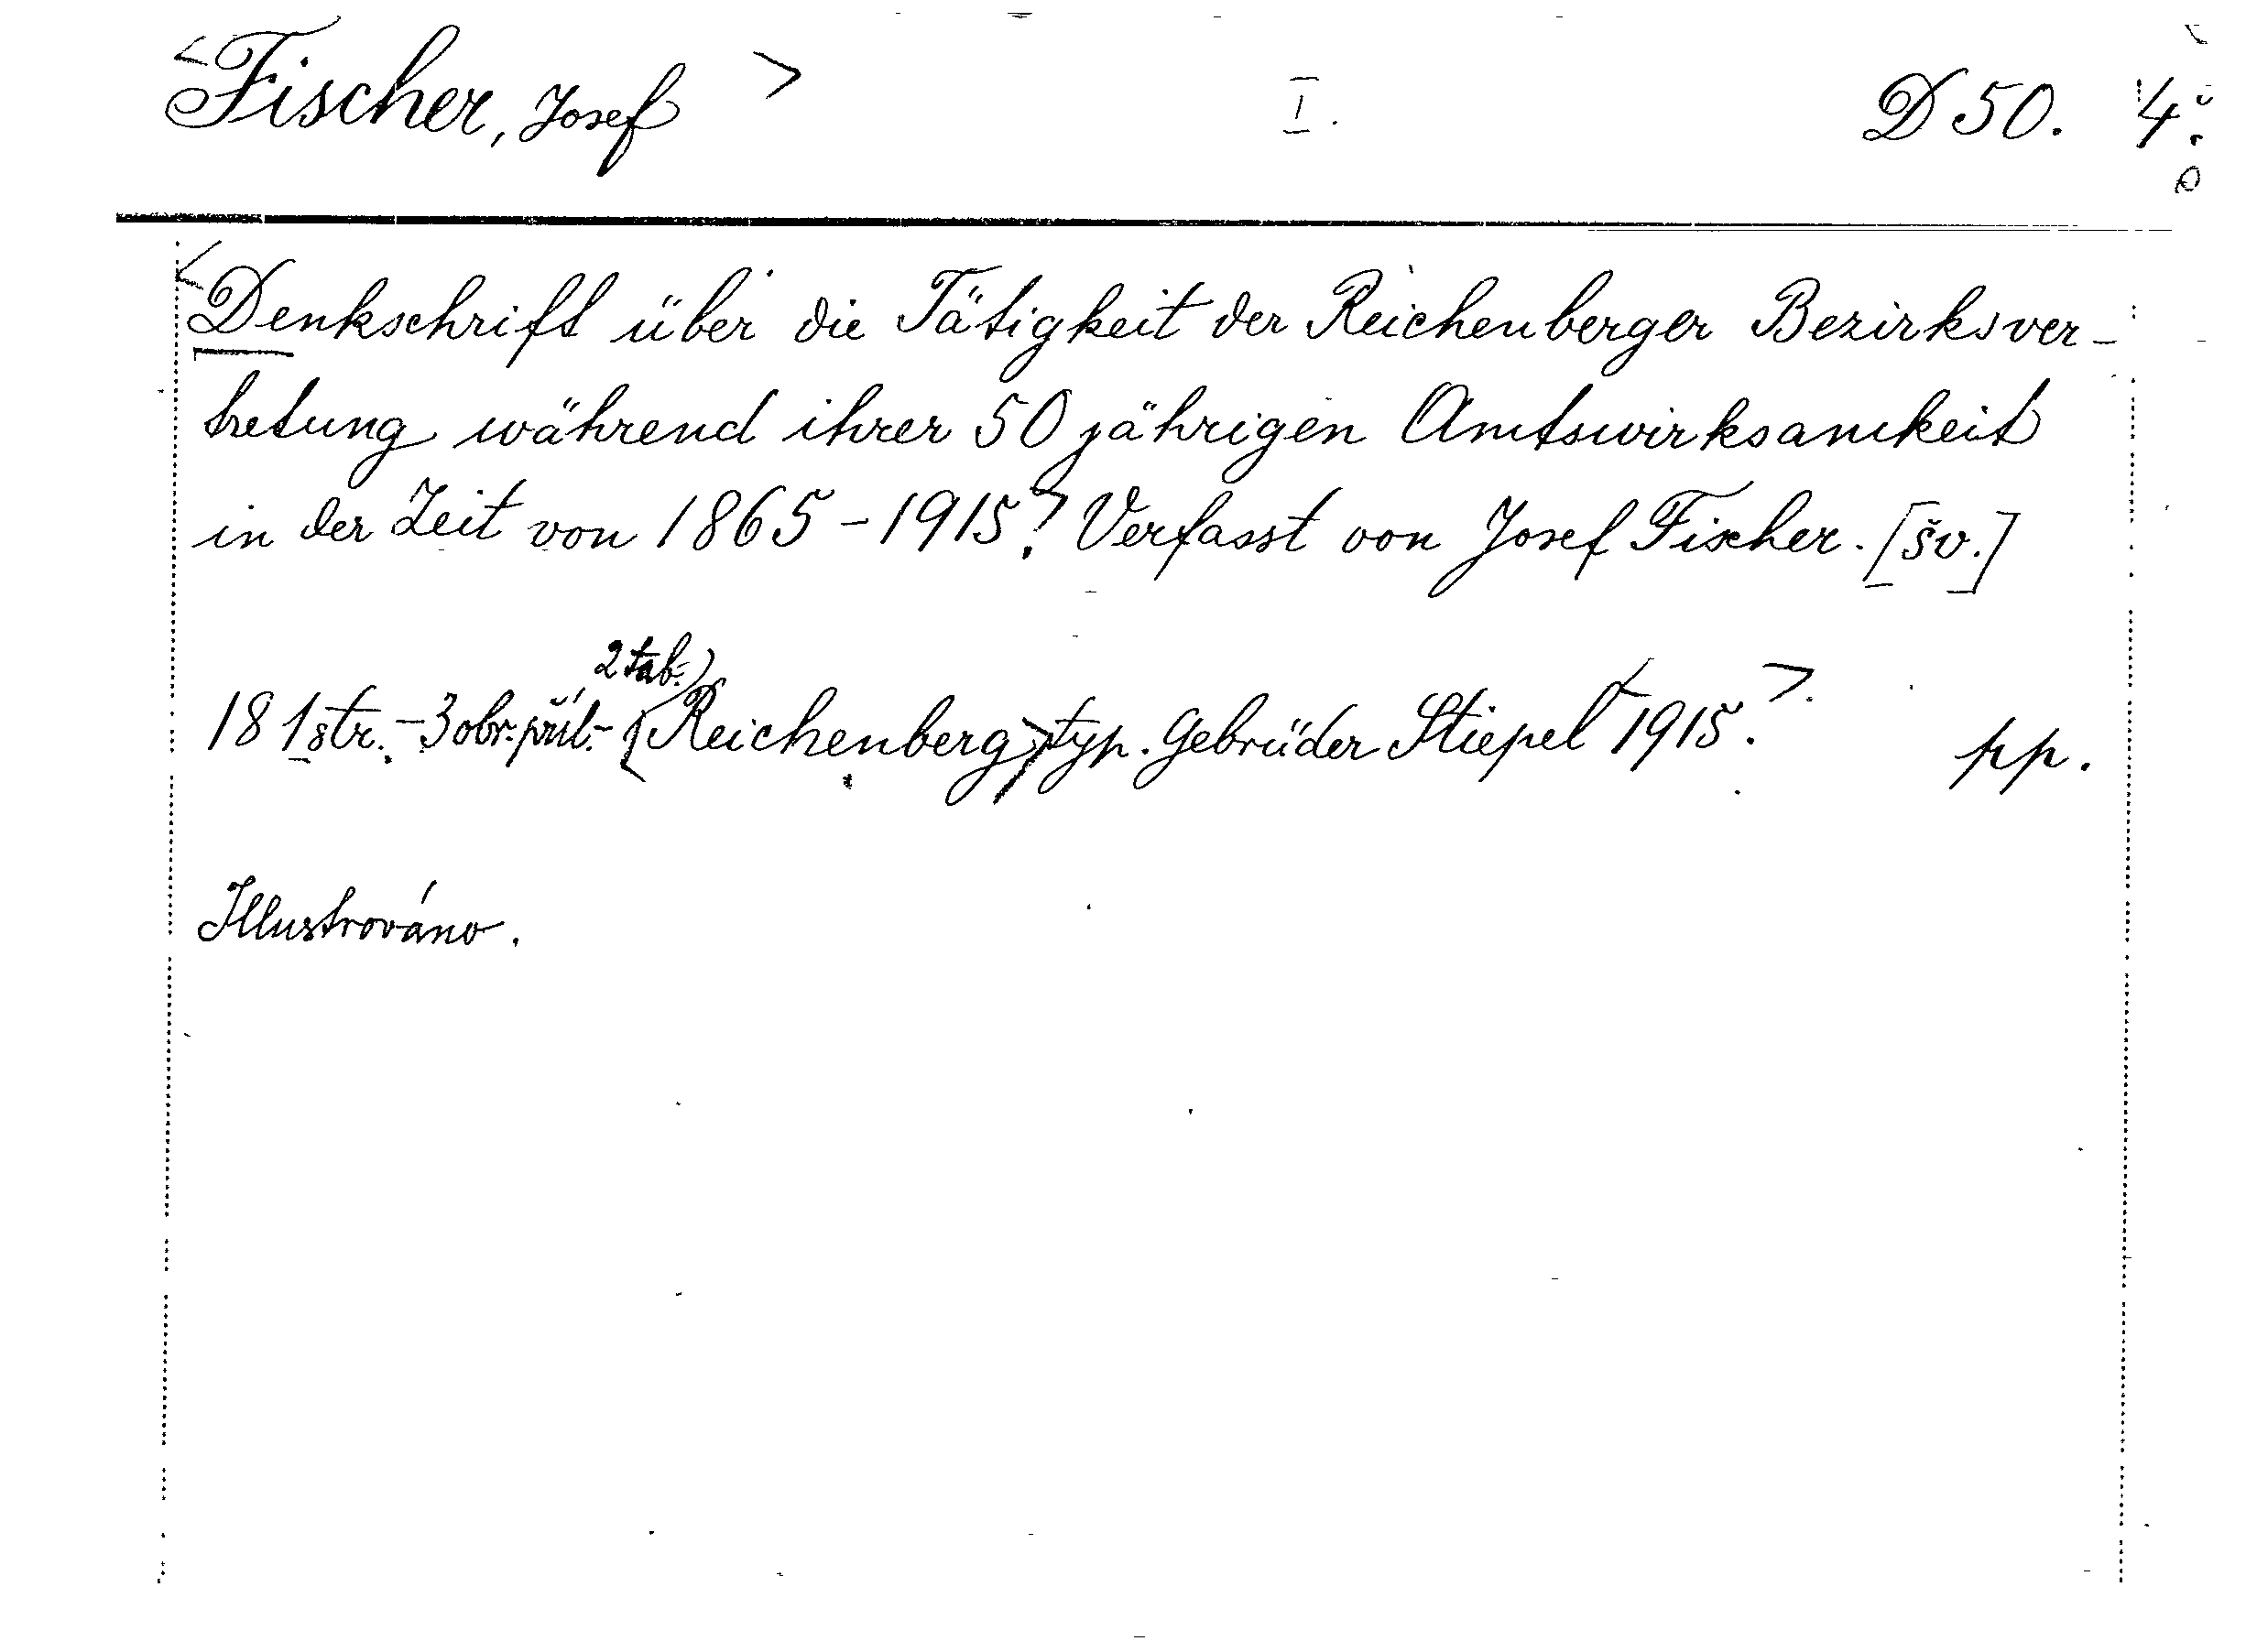 <Fischer, Josef> I. D 50. 4:
<Denkschrift über die Tätigkeit der Reichenberger Bezirksver-
tretung während ihrer 50 jährigen Amtswirksamkeit
in der Zeit von 1865-1915>. Verfasst von Josef Fischer. [šv.]
2 tab.
181 str. - 3 obr. příl. - <Reichenberg> typ. Gebrüder Stiepel <1915.> pp.
Illustrováno.